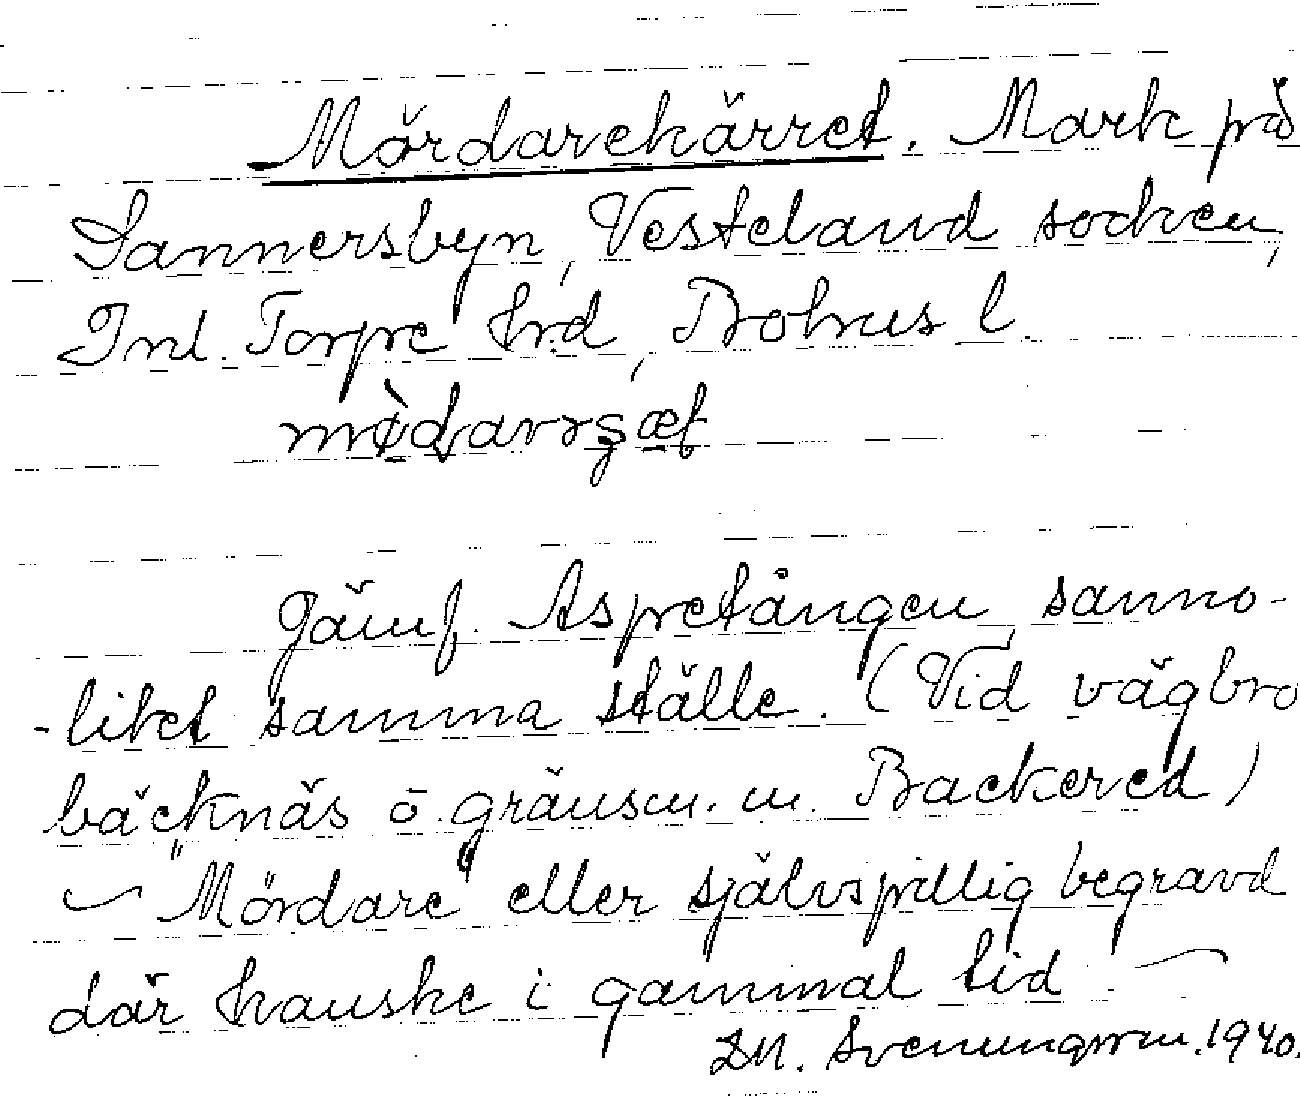 Mördarekärret. Mark på
Sannersbyn, Vesteland socken,
Inl. Torpe hrd, Bohus l.
Jämf. Aspetången, sanno-
-likt samma ställe. (Vid vägbro
bäcknäs o. gränsen. m. Backered)
"Mördare" eller självspillig begravd
där kanske i gammal tid
1940.